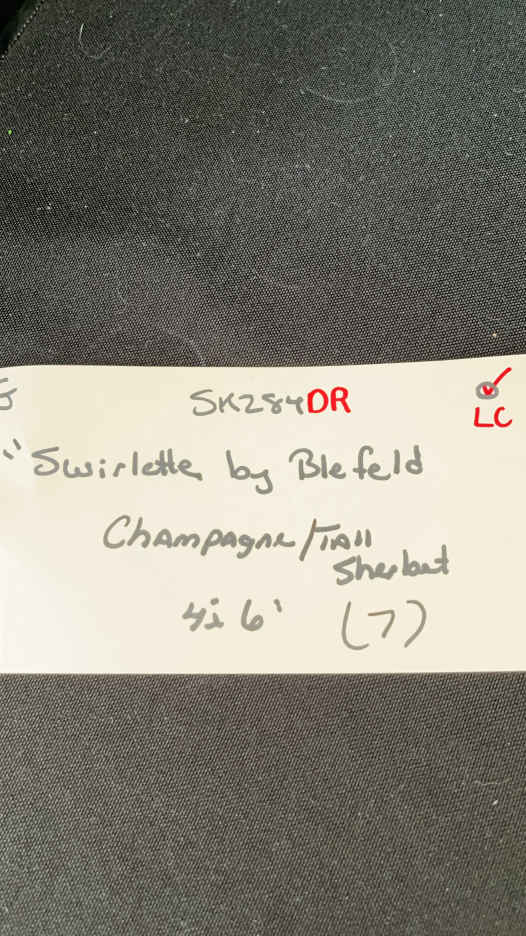 SK284DR
LC
"Swirlette by Blefeld
Champagne/Tall
Sherbet
(7)